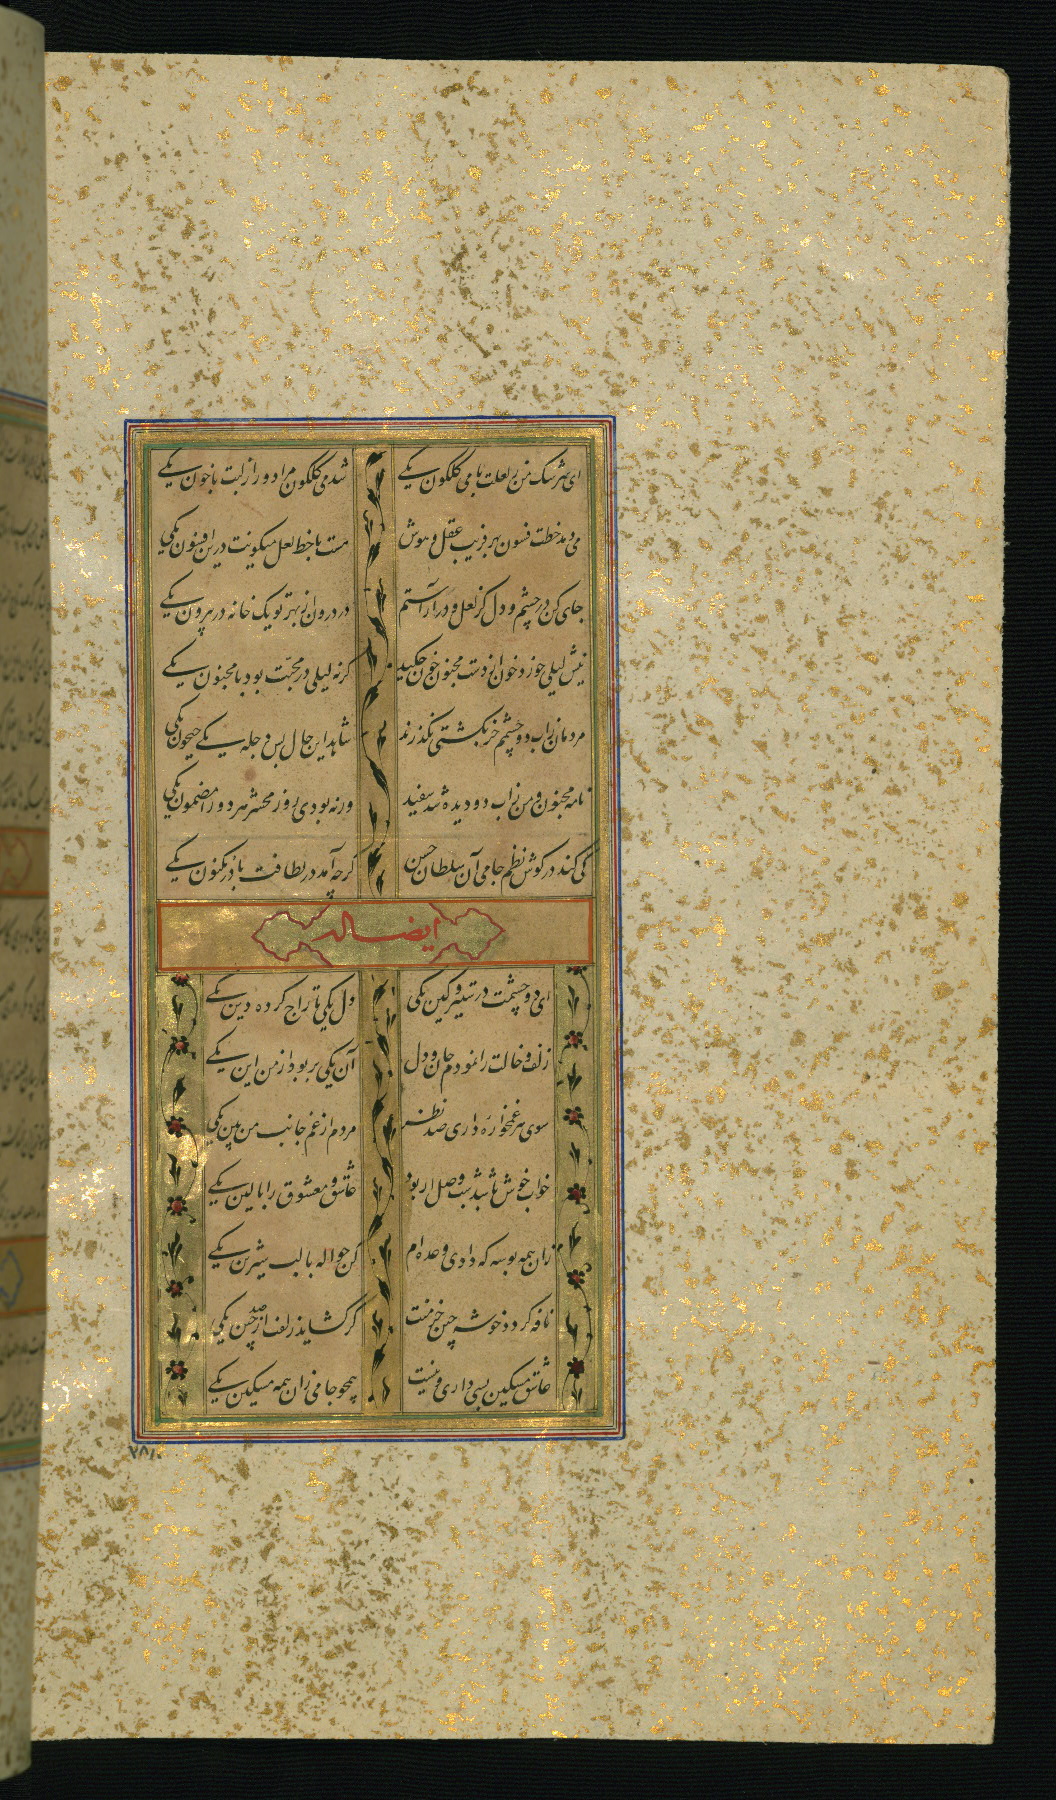 ای سرشک من ز لعلت با می گلگون یکی
شد می گلگون مرا دور از لبت با خون یکی
می دمد خطت فسون بهر فریب عقل و هوش
هست با خط لعل میگونت درین افسون یکی
جای کن در چشم و دل کز لعل و در آراستم
در درون از بهر تو یک خانه در بیرون یکی
نیش لیلی خورد خون از دست مجنون چکید
گر نه لیلی در محبت بود با مجنون یکی
مردمان ز آب دو چشمم جز بکشتی نگذرند
شاهد این حال بس دجله یکی جیحون یکی
نامه مجنون و من ز آب دو دیده شد سفید
ورنه بودی روز محشر هر دو را مضمون یکی
کی کند در گوش نظم جامی آن سلطان حسن
گرچه آمد در لطافت با در مکنون یکی
ایضا له
ای دو چشمت در ستیز و کین یکی
دل یکی تاراج کرده دین یکی
زلف و خالت را نمودم جان و دل
آن یکی بربود از من این یکی
سوی هر غمخواره داری صد نظر
مردم از غم جانب من بین یکی
خواب خوش باشد شب وصل ار بود
عاشق و معشوق را بالین یکی
زان همه بوسه که دادی وعده ام
کن حواله با لب شیرین یکی
نافه گردد خوشه چین خرمنت
گر گشاید زلفت از صد چین یکی
عاشق مسکین بسی داری و نیست
همچو جامی زان همه مسکین یکی